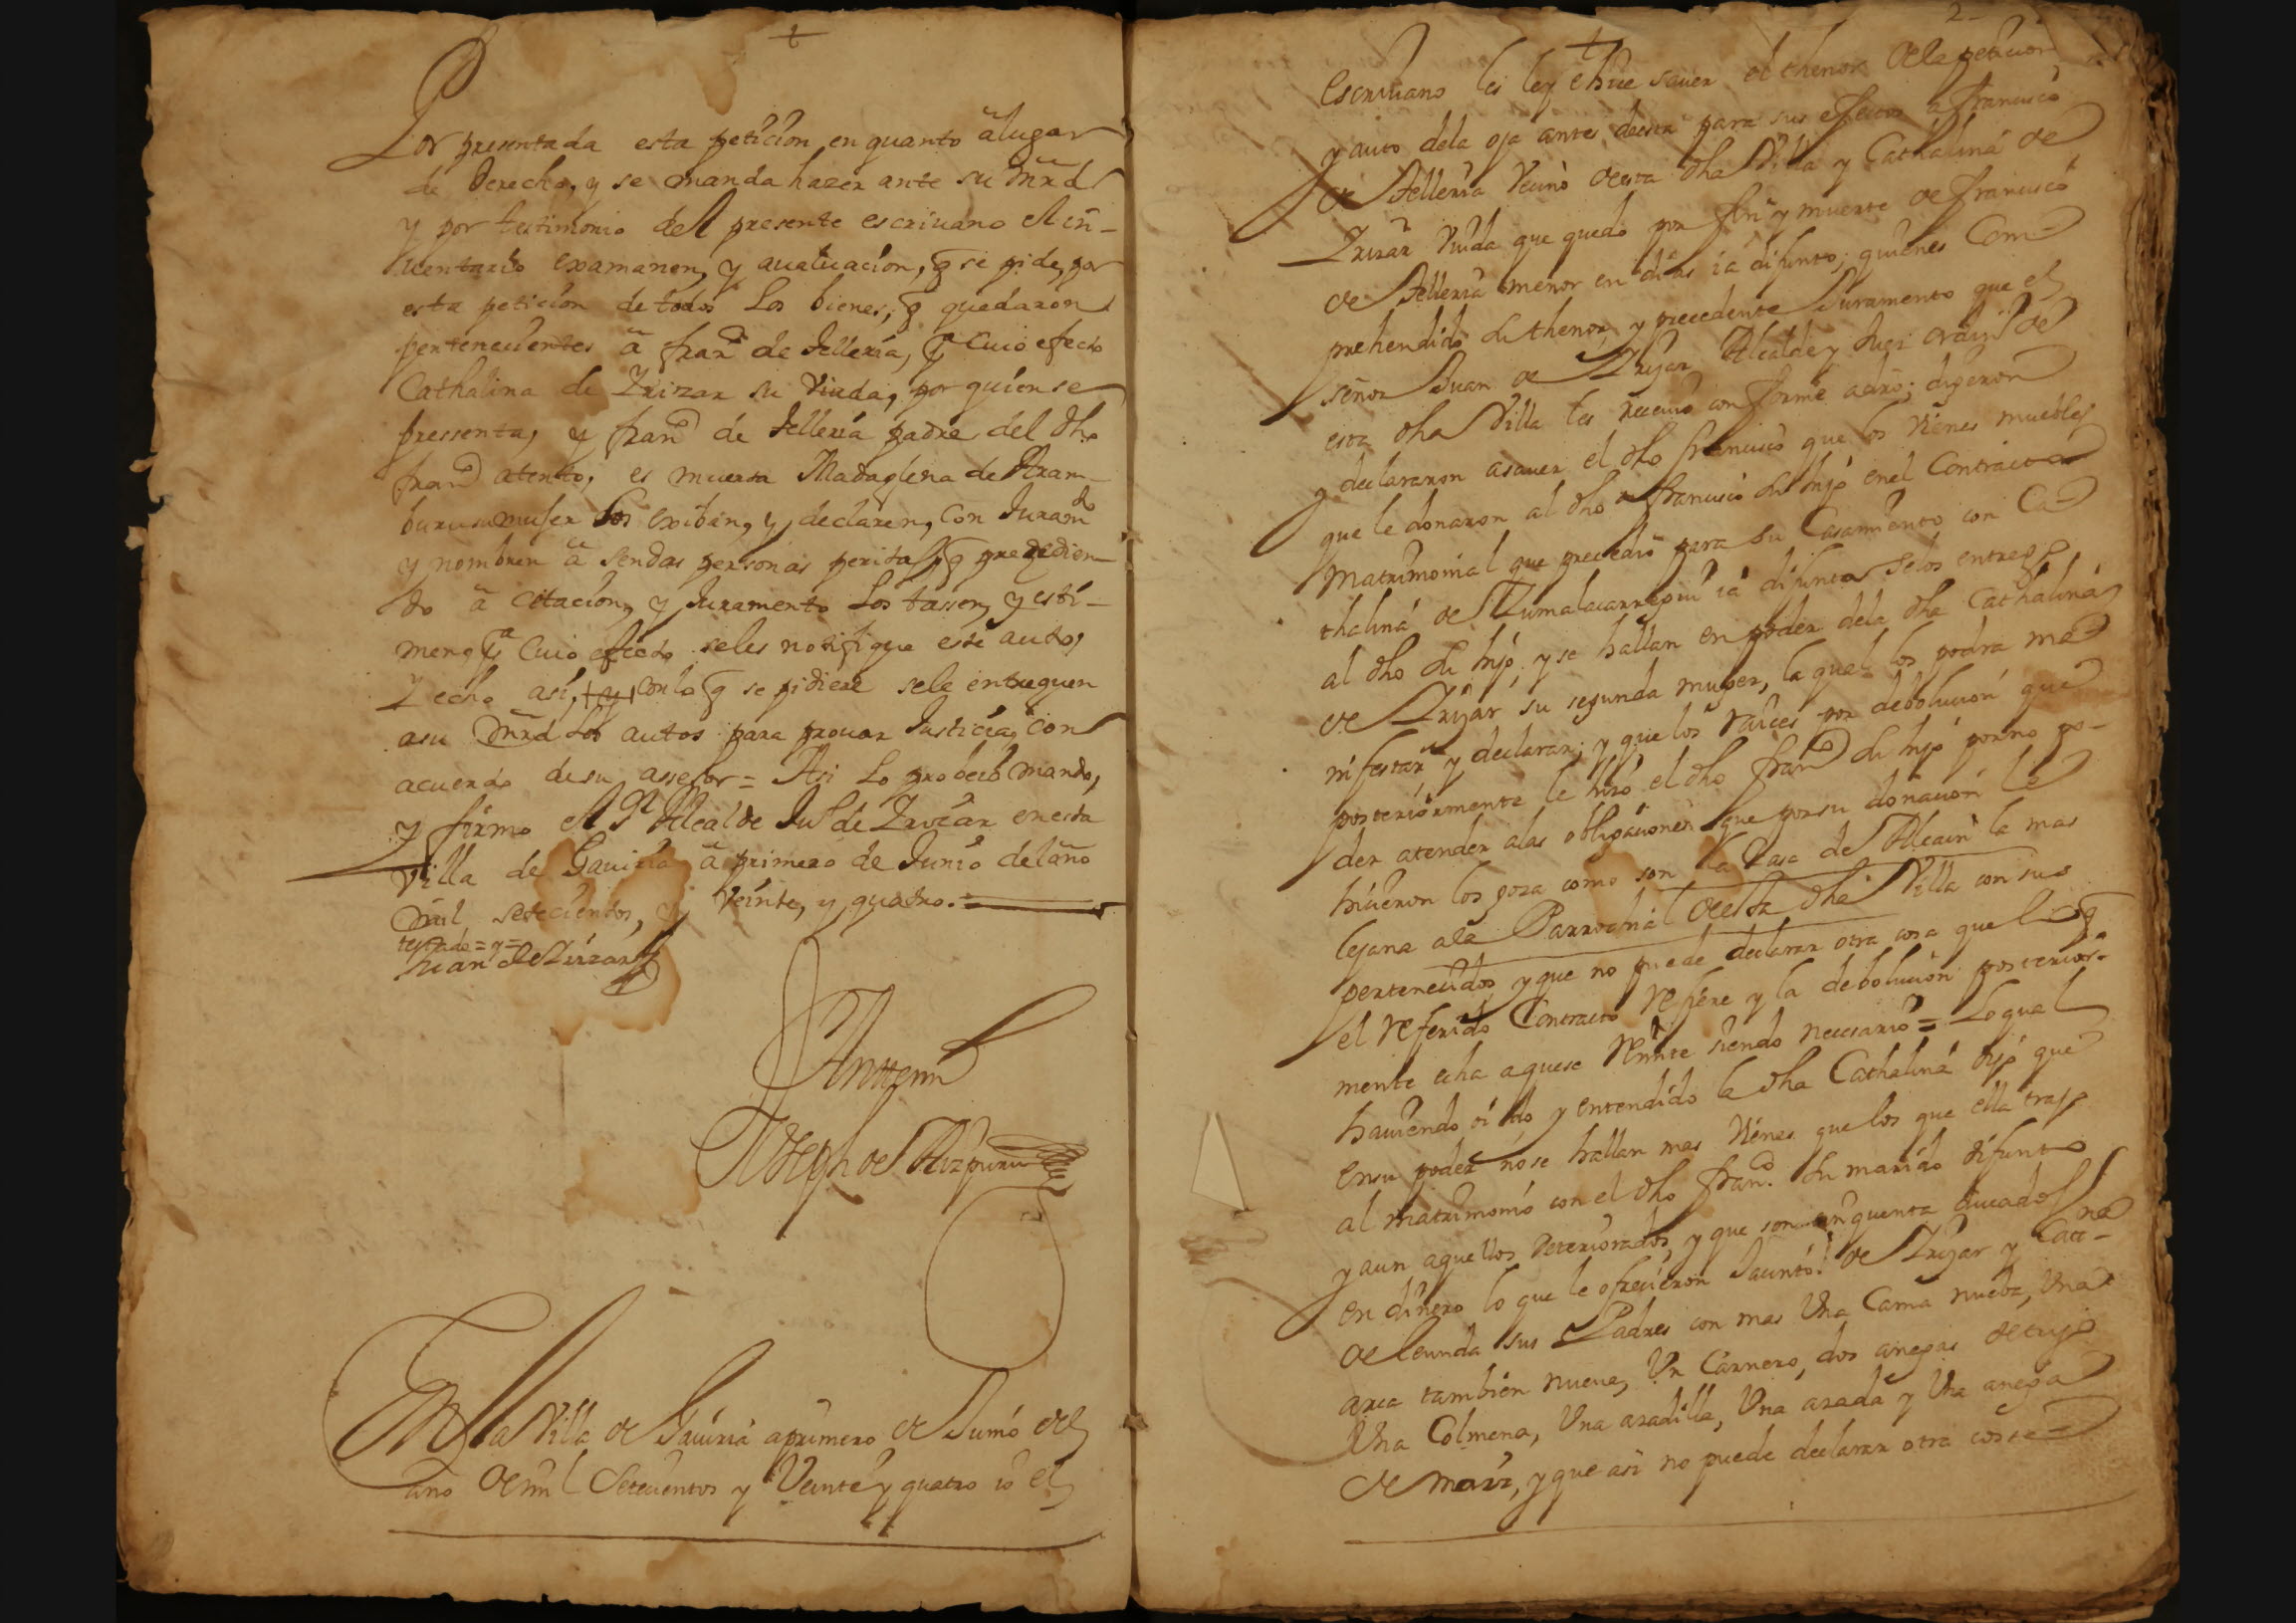 +
Por presentada esta peticion en quanto â lugar
de Derecho, y se manda hazer ante su mrd
y por testimonio del presente escriuano el in-
uentario examanen, y aualuacion, q̃ se pide, por
esta peticion de todos los bienes, q̃ quedaron
pertenecientes â fran.co de Telleria, pa cuio efecto
Cathalina de Yrizar su viuda, por quien se
pressenta, y fran.co de Telleria padre del dho
fran.co atento, es muerta Madaglena de Aram-
buru su muger los exiban, y declaren, con Juramto
y nombren â sendas personas peritas, q̃ prezedien-
do â citacion, y Juramento los tassen, y esti-
men, pa cuio efecto seles notifique este auto,
Y echo asi, y con lo q̃ se pidiere sele entreguen
asu mrd los autos para prouar Justicia, con
acuerdo de su assesor = Asi lo probeió mando,
y firmo el Sr Alcalde Jun de Yrizar en esta
villa de Gauiria â primero de Junio del año
mil setecientos, y veinte, y quatro. =
testado = y =
Juan de Yrizar
Antte mi
Joseph de Aizpuru
En la Villa de Gauiria a primero de Junio del
año de mil Setecientos y Veinte y quatro io el
2
+
escriuano les ley e hice sauer el thenor de la peticion
y auto dela oja antes desta para sus efectos a francisco
de Telleria vecino de esta dha Villa y Cathalina de
Yrizar viuda que quedo por fin y muerte de francisco
de Telleria menor en dias ia difunto; quienes Com-
prehendido su thenor, y precedente Juramento que el
señor Juan de Yrizar Alcalde y Juez ordin.o de
esta dha Villa les reciuio conforme a dro; digeron
y declararon asauer el dho francisco que los vienes muebles
que le donaron al dho francisco su hijo en el Contracto
matrimonial que precedio para su Casamiento con Ca-
thalina de Zumalacarregui ia difunta selos entrego
al dho su hijo, y se hallan en poder dela dha Cathalina
de Yrizar su segunda muger, la qual los podra ma-
nifestar y declarar; y que los raices por debolucion que
posteriormente le hizo el dho fran.co su hijo por no po-
der atender alas obligaciones que por su donacion le
hicieron los goza como son la Casa de Alcain la mas
lejana ala Parrochial de esta dha Villa con sus
pertenecidos y que no puede declarar otra cosa que lo q̃
el referido Contracto refiere y la debolucion posterior-
mente echa aquese remite siendo necesario = Lo qual
hauiendo oido y entendido la dha Cathalina dijo que
en su poder no se hallan mas vienes que los que ella trajo
al matrimonio con el dho fran.co su marido difunto
y aun aquellos deteriorados, y que son cinquenta ducados
en dinero lo que le ofrecieron Jacinto de Yrizar y Cata-
de Leunda sus Padres con mas Una Cama nueba, Una
arca tambien nueua, Un Carnero, dos anegas de trigo
Una Colmena, Una aradilla, Una azada y Una anega
de maiz, y que asi no puede declarar otra cosa